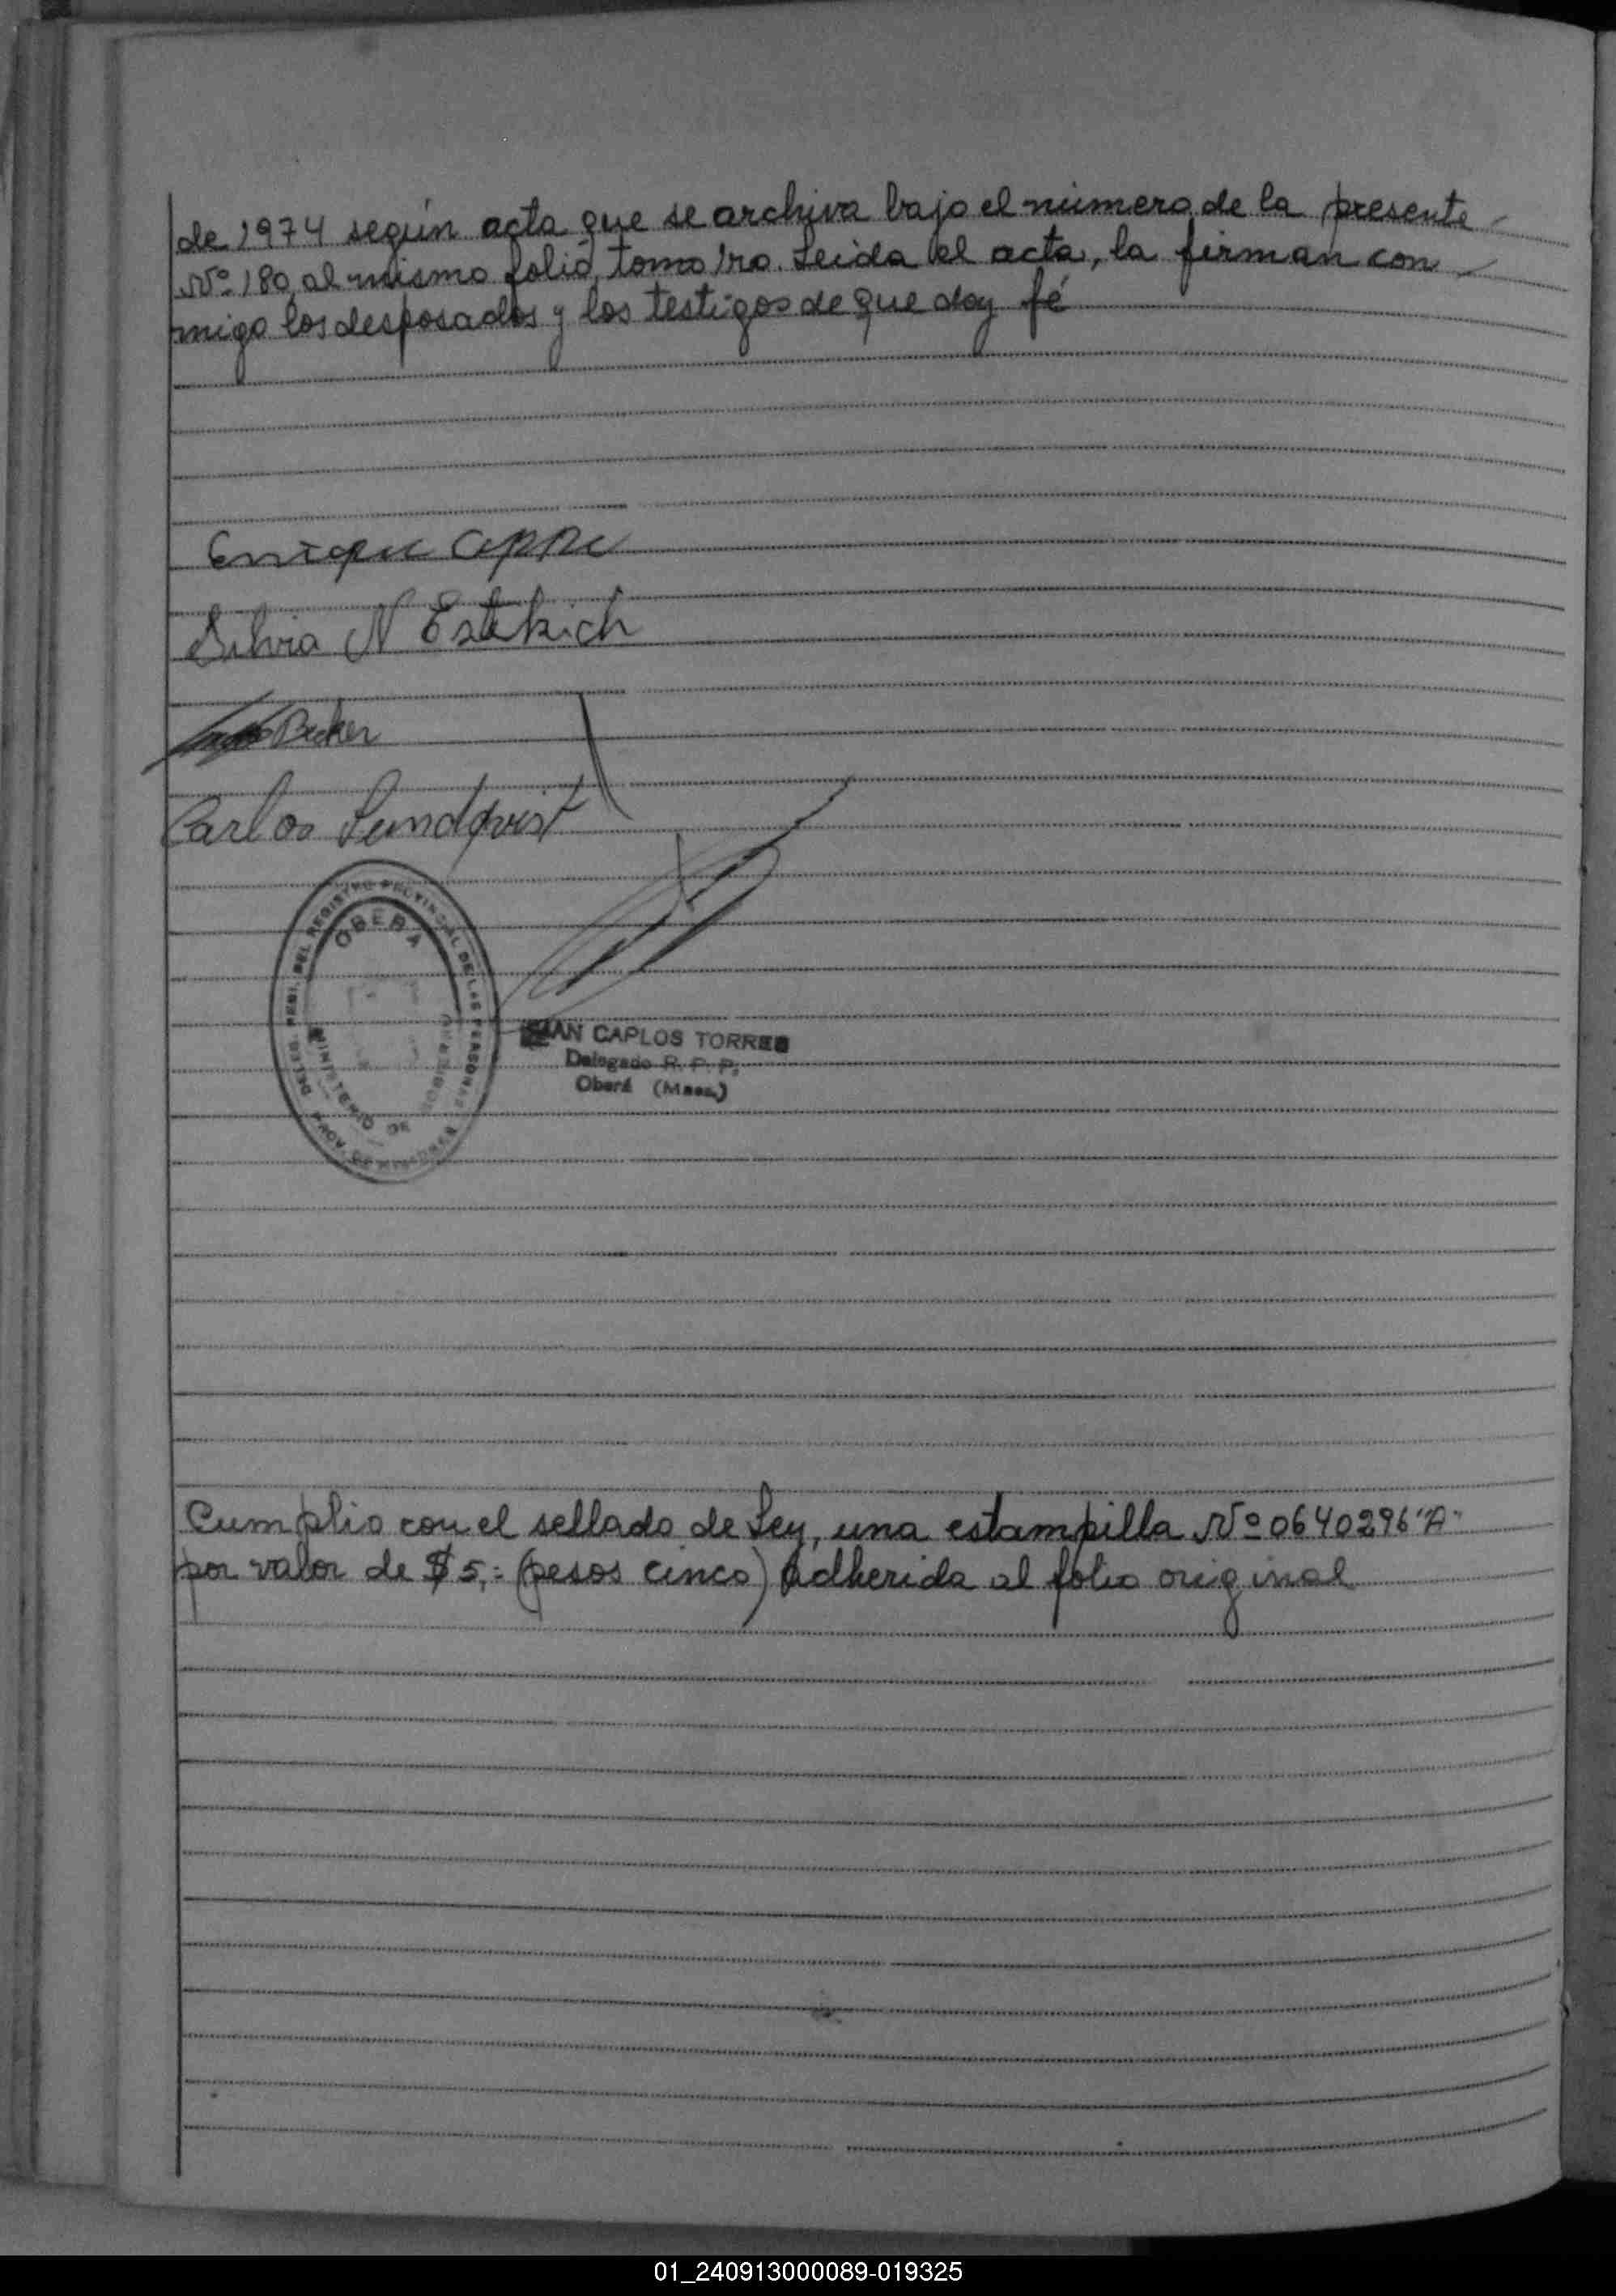 de 1974 según acta que se archiva bajo el número de la presente
Nº 180, al mismo folio, tomo 1ro. Leida el acta, la firman con
migo los desposados y los testigos de que doy fé
Enrique
Silvia N Estekich
Becker
Carlos Lundqvist
OBERA
DELEG. DEL REGISTRO PROVINCIAL DE LAS PERSONAS
MINISTERIO DE
JUAN CARLOS TORRES
Delegado R. P. P.
Oberá (Mnes.)
Cumplio con el sellado de Ley, una estampilla Nº 0640296 "A"
por valor de $ 5,= (pesos cinco) Adherida al folio original
01_240913000089-019325